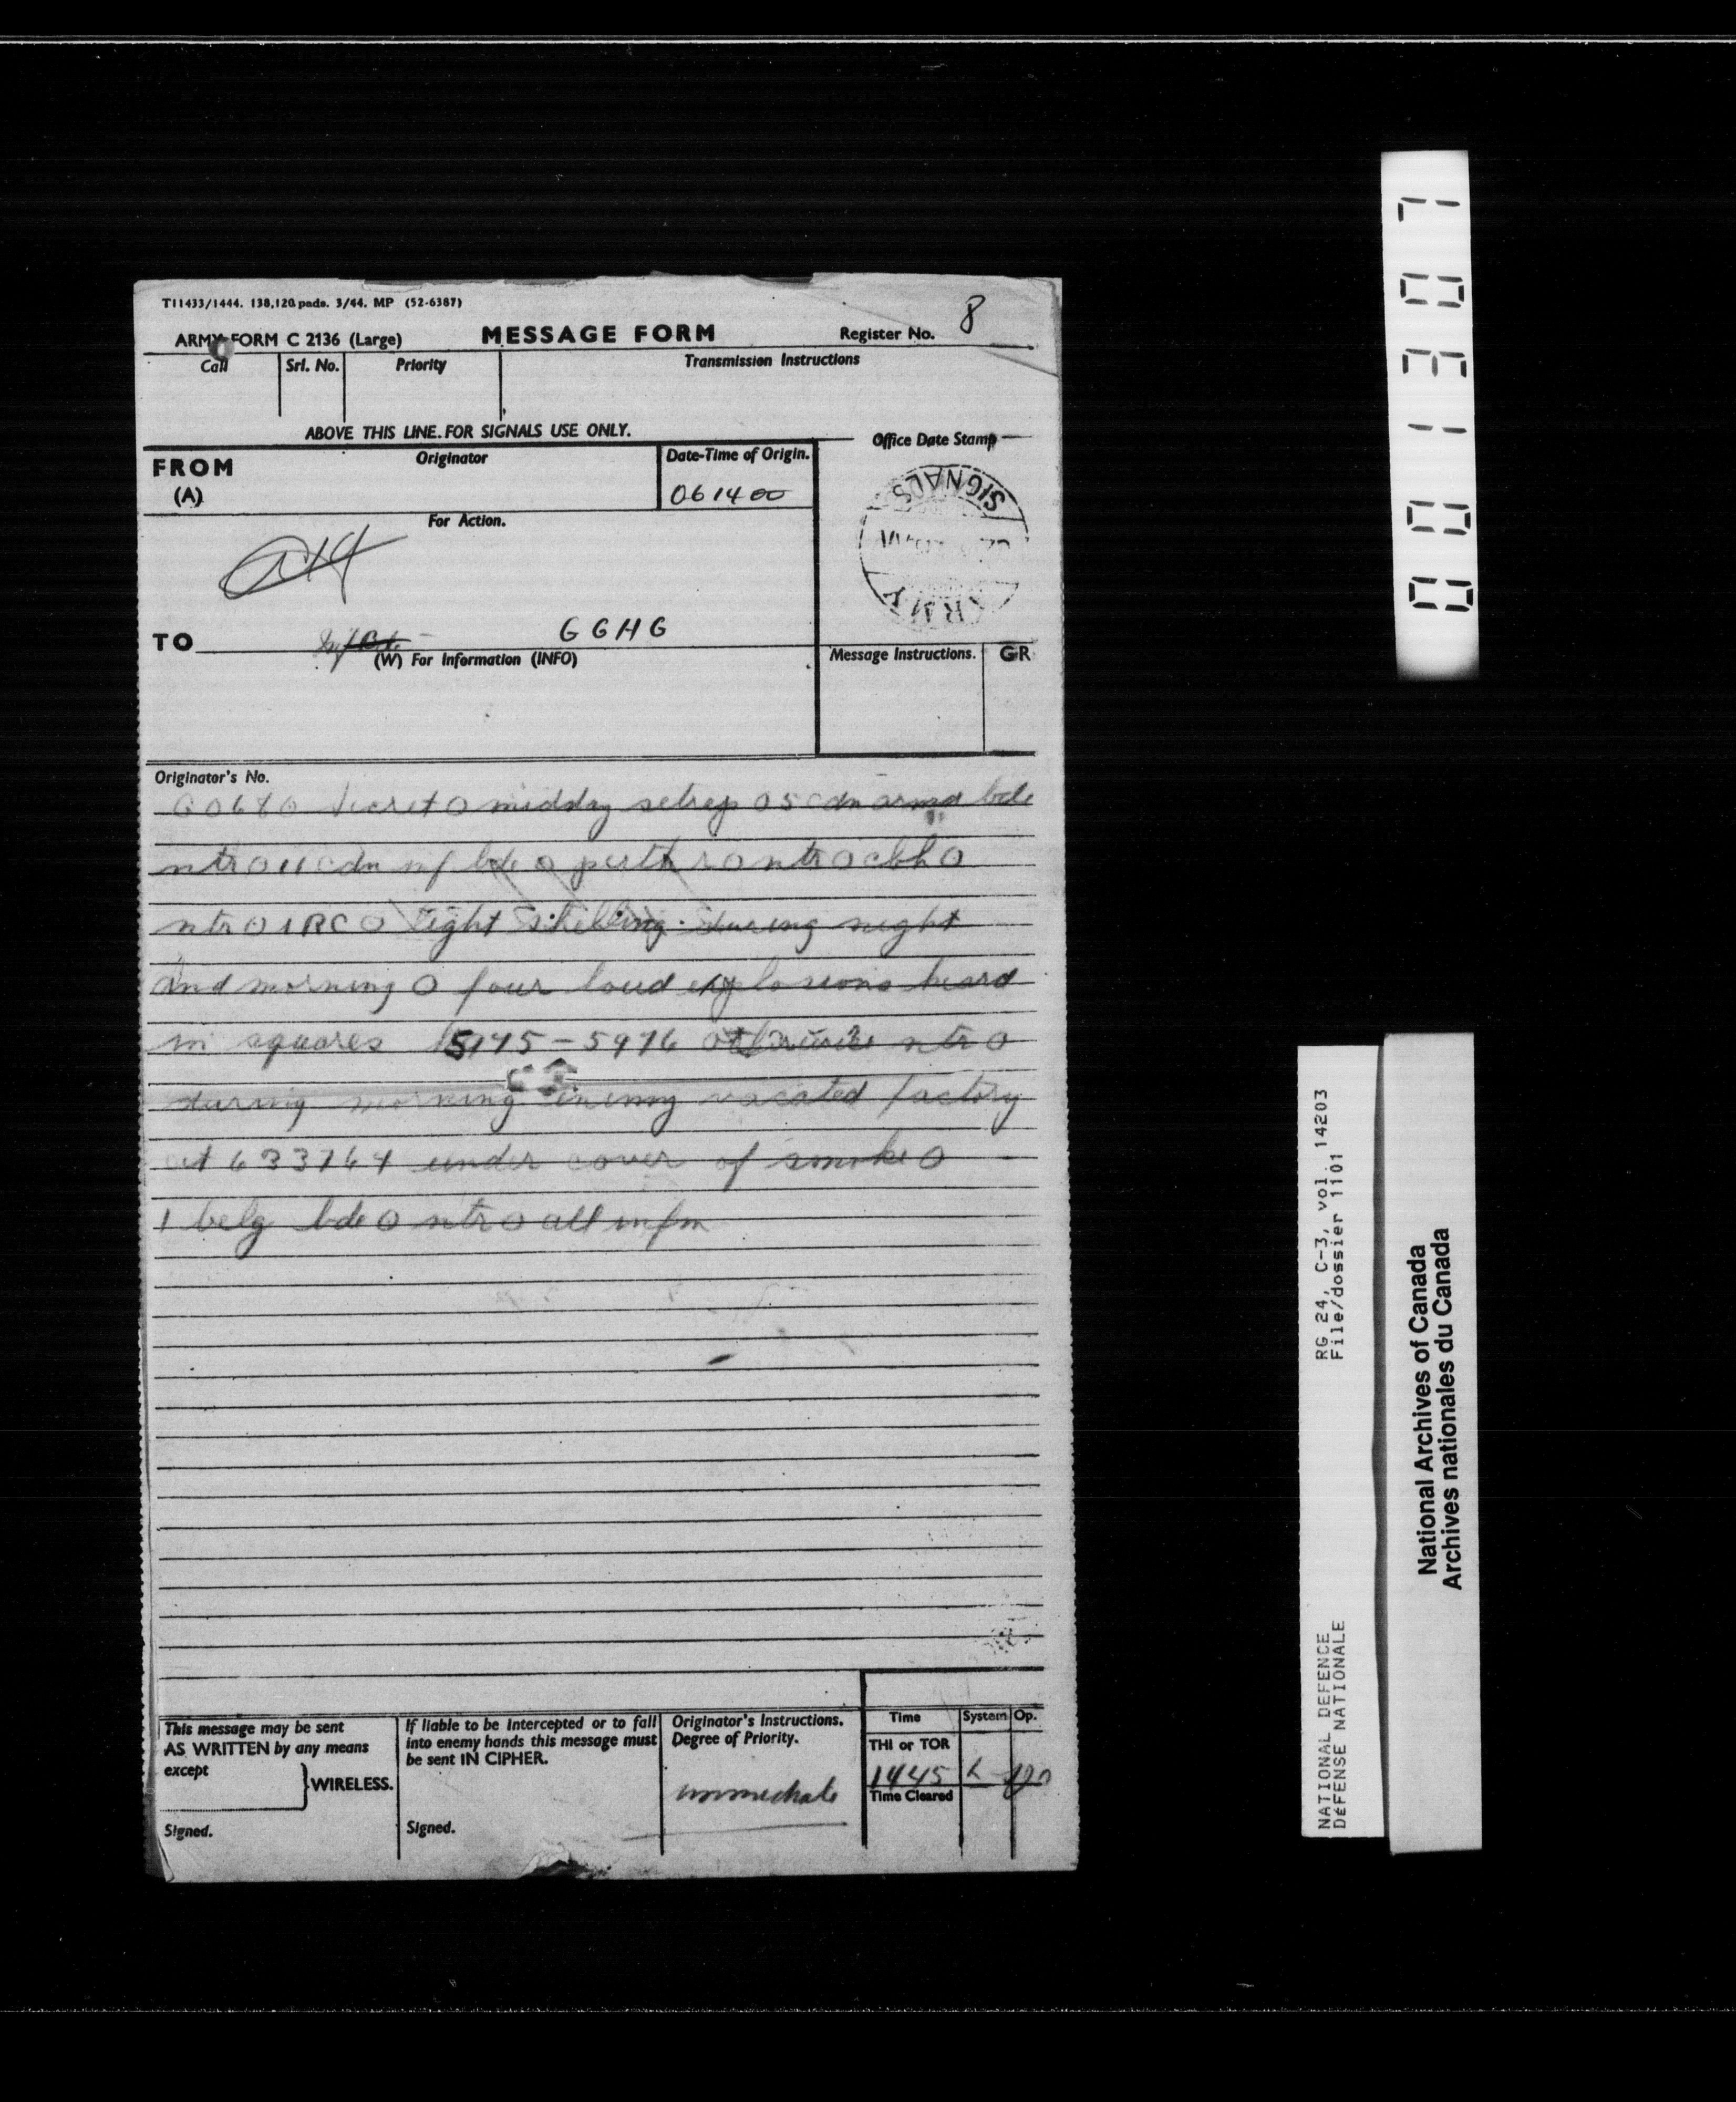 T11433/1444. 138,120 pads. 3/44. MP (52-6387)
ARMY FORM C 2136 (Large) MESSAGE FORM Register No. 8
Call Srl. No. Priority Transmission Instructions
ABOVE THIS LINE FOR SIGNALS USE ONLY.
Office Date Stamp
FROM Originator Date-Time of Origin.
(A) 061400
SIGNALS
For Action.
ARMY
TO GGHG
(W) For Information (INFO) Message Instructions. GR
Originator's No.
secret O midday sitrep O 5 cdn armd bde
ntr O 11 cdn inf bde O perth r O ntr O cbh O
ntr O IRC O light shelling during night
and morning O four loud explosions heard
in squares 5975 - 5976 ntr O
during morning enemy vacated factory
at 633764 under cover of smoke O
1 belg bde O ntr O all infm
This message may be sent
AS WRITTEN by any means
except
WIRELESS.
Signed.
If liable to be intercepted or to fall
into enemy hands this message must
be sent IN CIPHER.
Signed.
Originator's Instructions.
Degree of Priority.
immediate
Time System Op.
THI or TOR
1445
Time Cleared
001307
RG 24, C-3, vol. 14203
File/dossier 1101
NATIONAL DEFENCE
DÉFENSE NATIONALE
National Archives of Canada
Archives nationales du Canada